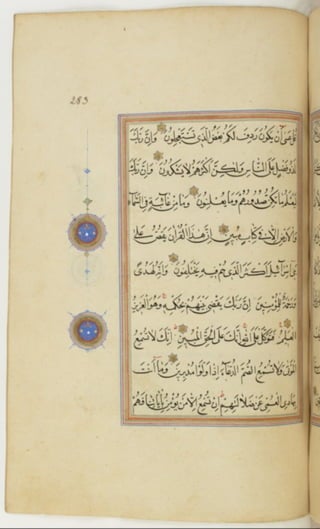 283
قل عسى أن يكون ردف لكم بعض الذي تستعجلون وإن ربك
لذو فضل على الناس ولكن أكثرهم لا يشكرون وإن ربك
ليعلم ما تكن صدورهم وما يعلنون وما من غائبة في السماء
والأرض إلا في كتاب مبين إن هذا القرآن يقص على
بني إسرائيل أكثر الذي هم فيه يختلفون وإنه لهدى
ورحمة للمؤمنين إن ربك يقضي بينهم بحكمه وهو العزيز
العليم فتوكل على الله إنك على الحق المبين إنك لا تسمع
الموتى ولا تسمع الصم الدعاء إذا ولوا مدبرين وما أنت
بهادي العمي عن ضلالتهم إن تسمع إلا من يؤمن بآياتنا فهم